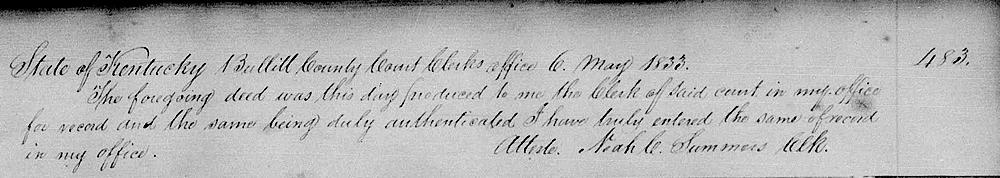 State of Kentucky Bullitt County Court Clerks office 6. May 1833. 483.
The foregoing deed was this day produced to me the Clerk of said court in my office
for record and the same being duly authenticated I have truly entered the same of record
in my office. Atteste. Noah C. Summers Clk.